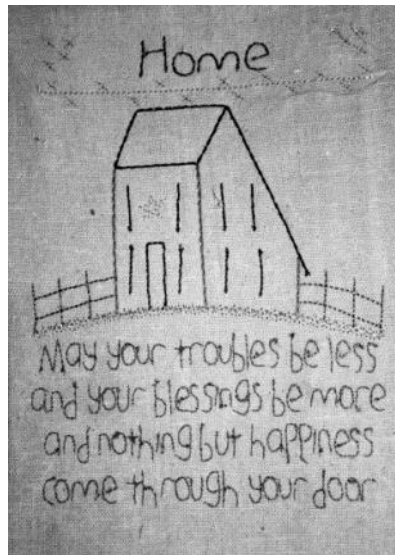 Home
May your troubles be less
and your blessings be more
and nothing but happiness
come through your door